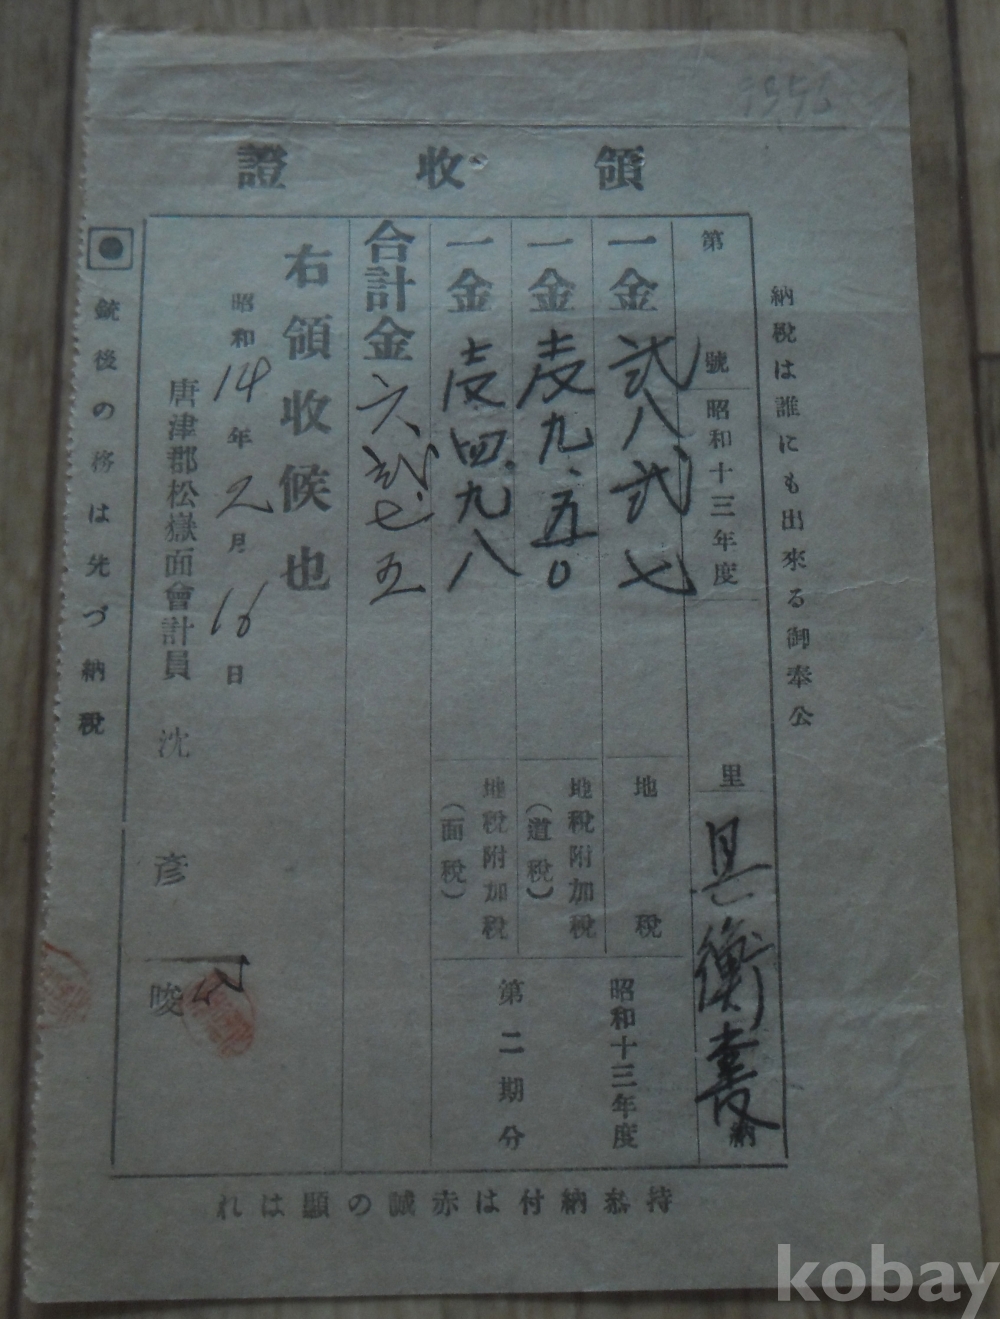 領收證
納稅は誰にも出來る御奉公
第　號　昭和十三年度　里　具衡書　納
一金　貳八貳七　地稅　昭和十三年度
一金　壹九.五〇　地稅附加稅（道稅）　第二期分
一金　壹四.九八　地稅附加稅（面稅）
合計金　六貳七五
右領收候也
昭和14年2月16日
唐津郡松嶽面會計員　沈彥晙
銃後の務は先づ納稅
持參納付は赤誠の顯はれ
kobay